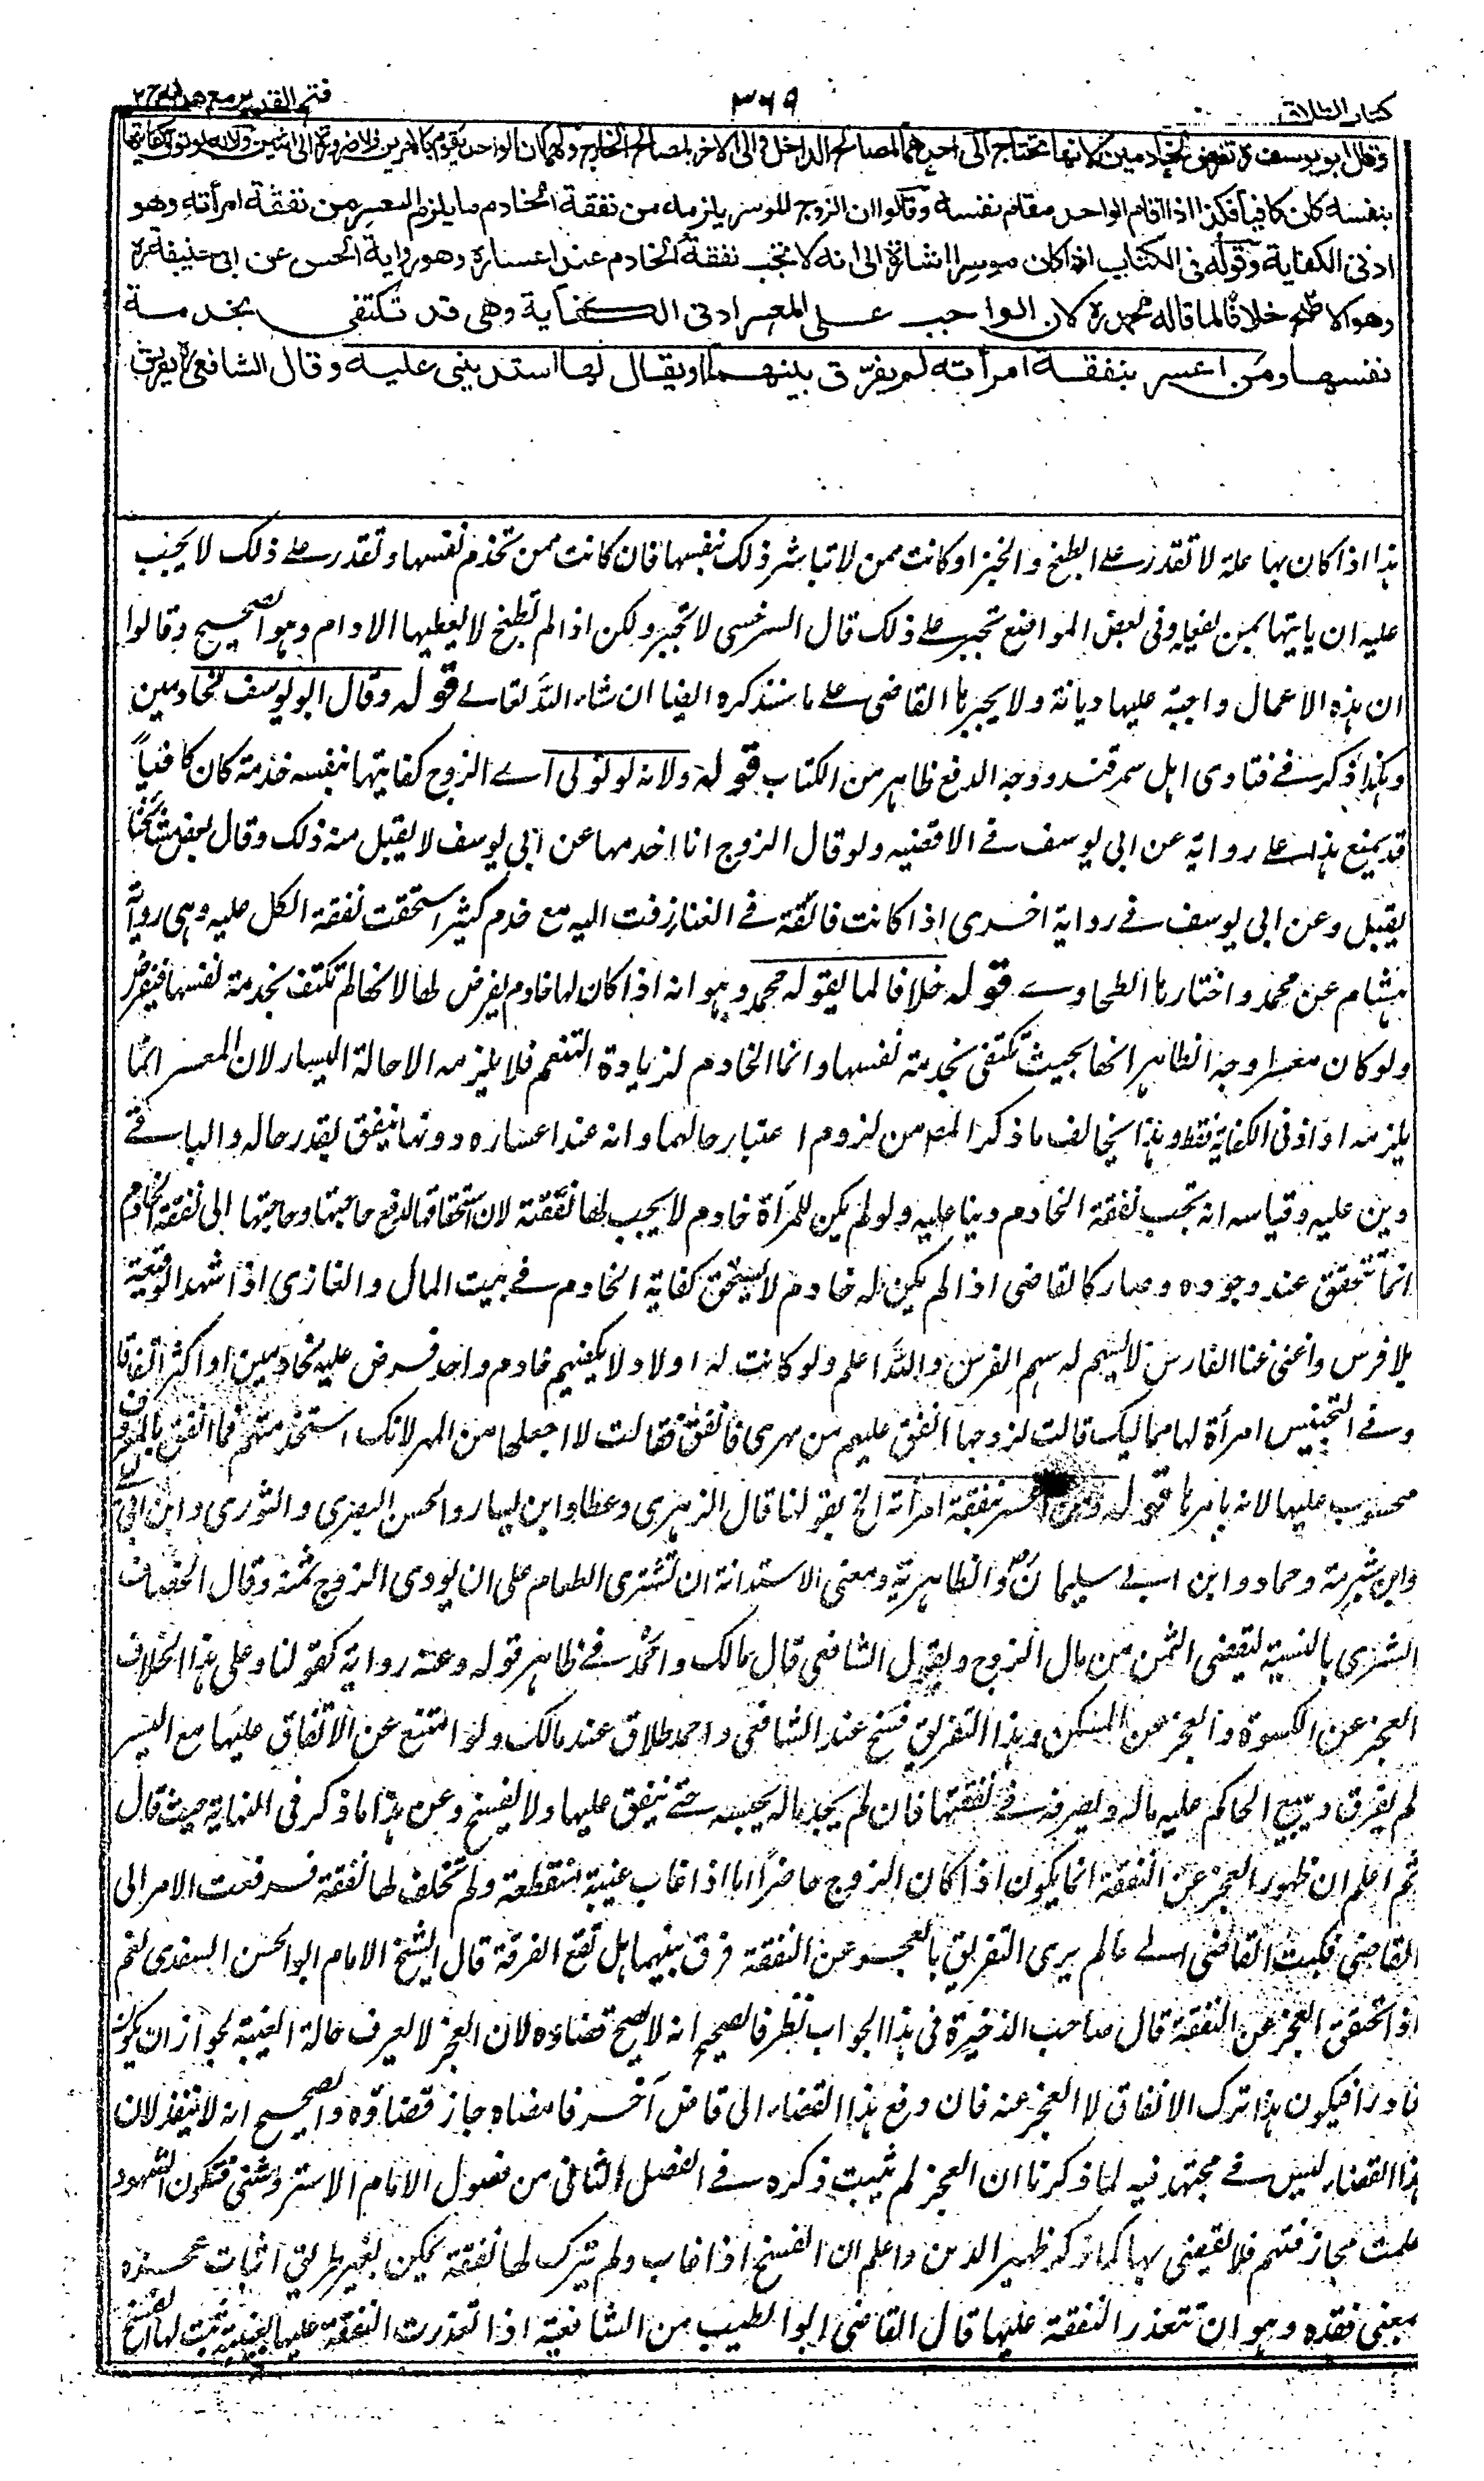 كتاب الطلاق
٣٢٩
فتح القدير مع هدايه ج ٢
وقال ابو يوسف رح تفرض لخادمين لانها تحتاج الى احدهما لمصالح الداخل والى الاخر لمصالح الخارج ولهما ان الواحد يقوم بالامرين فلا ضرورة الى اثنين ولانه لو تولى كفايتها
بنفسه كان كافيا فكذا اذا اقام الواحد مقام نفسه وقالوا ان الزوج الموسر يلزمه من نفقة الخادم ما يلزم المعسر من نفقة امرأته وهو
ادنى الكفاية وقوله فى الكتاب اذا كان موسرا اشارة الى انه لا تجب نفقة الخادم عند اعساره وهو رواية الحسن عن ابى حنيفة رح
وهو الاصح خلافا لما قاله محمد رح لان الواجب على المعسر ادنى الكفاية وهى قد تكتفى بخدمة
نفسها ومن اعسر بنفقة امرأته لم يفرق بينهما ويقال لها استدينى عليه وقال الشافعى رح يفرق
هذا اذا كان بها علة لا تقدر على الطبخ والخبز او كانت ممن لا تباشر ذلك بنفسها فان كانت ممن تخدم نفسها وتقدر على ذلك لا يجب
عليه ان ياتيها بمن يفعله وفى بعض المواضع تجبر على ذلك قال السرخسى لا تجبر ولكن اذا لم تطبخ لا يعطيها الادام وهو الصحيح وقالوا
ان هذه الاعمال واجبة عليها ديانة ولا يجبرها القاضى على ما سنذكره ايضا ان شاء الله تعالى قوله وقال ابو يوسف لخادمين
وهكذا ذكر فى فتاوى اهل سمرقند ووجه الدفع ظاهر من الكتاب قوله ولانه لو تولى اى الزوج كفايتها بنفسه خدمة كان كافيا
قد يمنع هذا على رواية عن ابى يوسف فى الاقضية ولو قال الزوج انا اخدمها عن ابى يوسف لا يقبل منه ذلك وقال بعض مشائخنا
يقبل وعن ابى يوسف فى رواية اخرى اذا كانت فائقة فى الغنا زفت اليه مع خدم كثير استحقت نفقة الكل عليه وهى رواية
هشام عن محمد واختارها الطحاوى قوله خلافا لما يقوله محمد وهو انه اذا كان لها خادم يفرض لها لانها لم تكتف بخدمة نفسها فيفرض
ولو كان معسرا وجه الظاهر انها بحيث تكتفى بخدمة نفسها وانما الخادم لزيادة التنعم فلا يلزمه الا حالة اليسار لان المعسر انما
يلزمه ادنى الكفاية فقط وهذا يخالف ما ذكر المصـ من لزوم اعتبار حالهما وانه عند اعساره دونها ينفق بقدر حاله والباقى
دين عليه وقياسه انه تجب نفقة الخادم دينا عليه ولو لم يكن للمرأة خادم لا يجب لها نفقته لان استحقاقها لدفع حاجتها وحاجتها الى نفقة الخادم
انما تتحقق عند وجوده وصار كالقاضى اذا لم يكن له خادم لا يستحق كفاية الخادم فى بيت المال والغازى اذا شهد الوقعة
بلا فرس واغنى غنا الفارس لا يسهم له سهم الفرس والله اعلم ولو كانت له اولاد لا يكفيهم خادم واحد فرض عليه لخادمين او اكثر اتفاقا
وفى التجنيس امرأة لها مماليك قالت لزوجها انفق عليهم من مهرى فانفق فقالت لا اجعلها من المهر لانك استخدمتهم فما انفق بالمعروف
محسوب عليها لانه بامرها قوله ومن اعسر بنفقة امرأته الخ بقولنا قال الزهرى وعطا وابن يسار والحسن البصرى والثورى وابن ابى ليلى
وابن شبرمة وحماد وابن ابى سليمان والظاهرية ومعنى الاستدانة ان تشترى الطعام على ان يودى الزوج ثمنه وقال الخصاف
الشرى بالنسية ليقضى الثمن من مال الزوج وبقول الشافعى قال مالك واحمد فى ظاهر قوله وعنه رواية كقولنا وعلى هذا الخلاف
العجز عن الكسوة والعجز عن المسكن وهذا التفريق فسخ عند الشافعى واحمد طلاق عند مالك ولو امتنع عن الانفاق عليها مع اليسر
لم يفرق ويبيع الحاكم عليه ماله ويصرفه فى نفقتها فان لم يجد ماله يحبسه حتى ينفق عليها ولا يفسخ وعن هذا ما ذكر فى النهاية حيث قال
ثم اعلم ان ظهور العجز عن النفقة انما يكون اذا كان الزوج حاضرا اما اذا غاب غيبة منقطعة ولم تخلف لها نفقة فرفعت الامر الى
القاضى فكتب القاضى الى عالم يرى التفريق بالعجز عن النفقة فرق بينهما هل تقع الفرقة قال الشيخ الامام ابو الحسن السغدى نعم
اذا تحقق العجز عن النفقة قال صاحب الذخيرة فى هذا الجواب نظر فالصحيح انه لا يصح قضاؤه لان العجز لا يعرف حالة الغيبة لجواز ان يكون
قادرا فيكون هذا ترك الانفاق لا العجز عنه فان رفع هذا القضاء الى قاض آخر فامضاه جاز قضاؤه والصحيح انه لا ينفذ لان
هذا القضاء ليس فى مجتهد فيه لما ذكرنا ان العجز لم يثبت ذكره فى الفصل الثانى من فصول الامام الاستروشنى فتكون الشهود
علمت مجازفتهم فلا يقضى بها كما ذكره ظهير الدين واعلم ان الفسخ اذا غاب ولم يترك لها نفقة يمكن بغير طريق اثبات عجزه
بمعنى فقده وهو ان تتعذر النفقة عليها قال القاضى ابو الطيب من الشافعية اذا تعذرت النفقة عليها بغيبته ثبت لها الفسخ